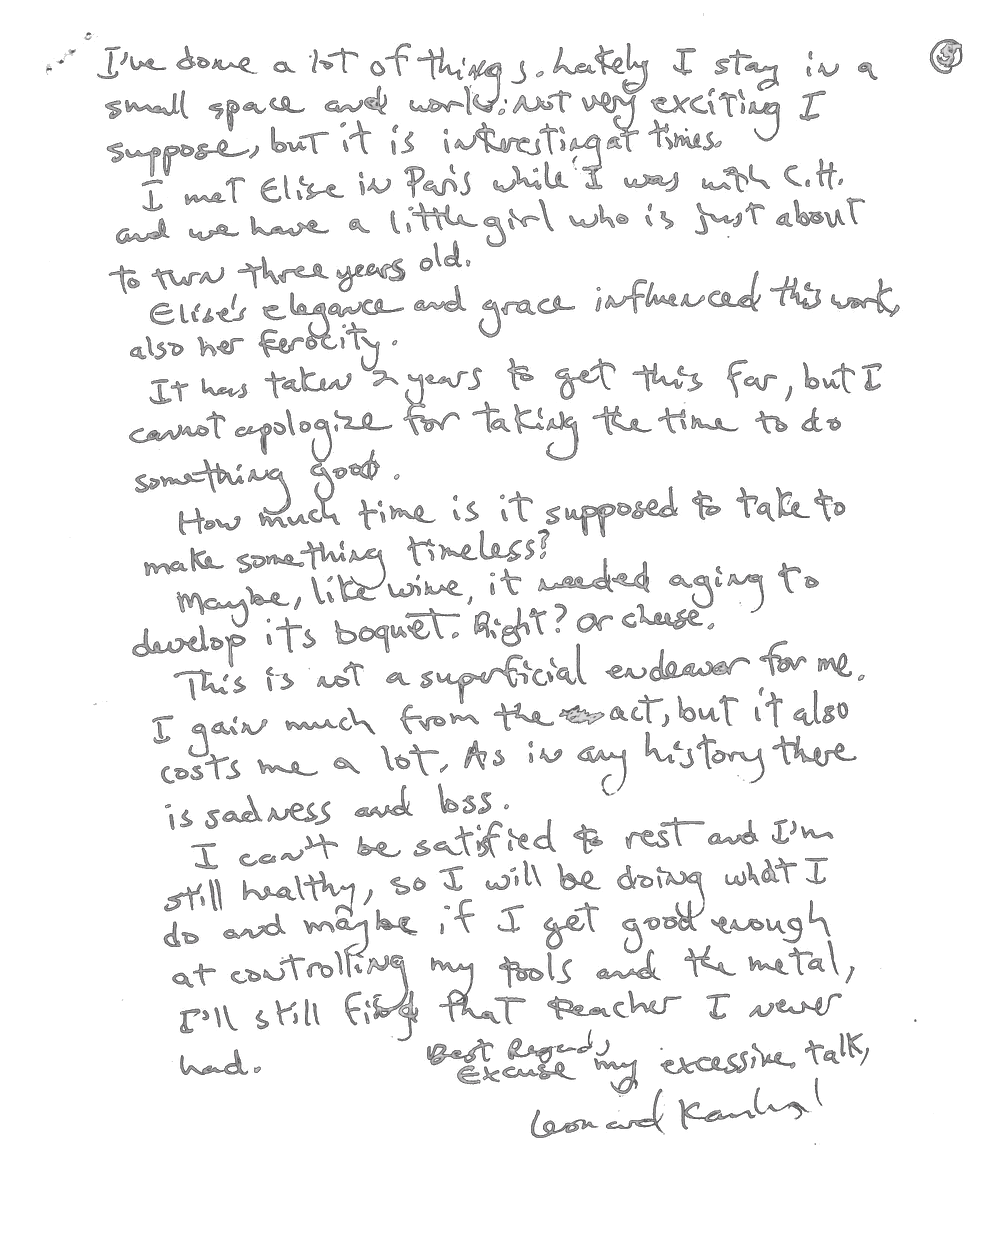 I've done a lot of things. Lately I stay in a
small space and work; not very exciting I
suppose, but it is interesting at times.
I met Elise in Paris while I was with C.H.
and we have a little girl who is just about
to turn three years old.
Elise's elegance and grace influenced this work,
also her ferocity.
It has taken 2 years to get this far, but I
cannot apologize for taking the time to do
something good.
How much time is it supposed to take to
make something timeless?
Maybe, like wine, it needed aging to
develop its boquet. Right? Or cheese.
This is not a superficial endeavor for me.
I gain much from the act, but it also
costs me a lot. As in any history there
is sadness and loss.
I can't be satisfied to rest and I'm
still healthy, so I will be doing what I
do and maybe if I get good enough
at controlling my tools and the metal,
I'll still find that teacher I never
had.
Best Regards
Excuse my excessive talk,
Leonard